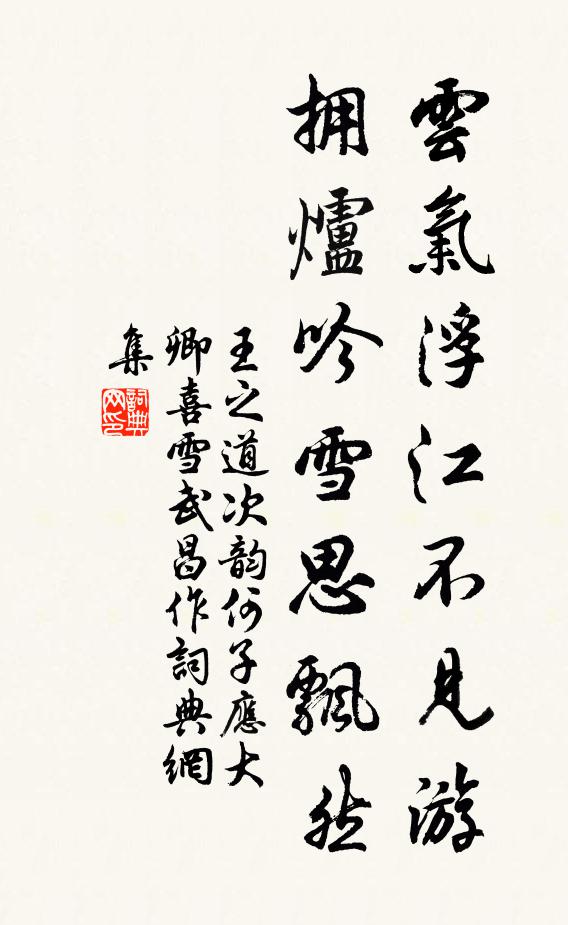 雲氣浮江不見游
拥爐吟雪思飄然
王之道次韵何子應大
卿喜雪武昌作詞典網
集
詞典
网印